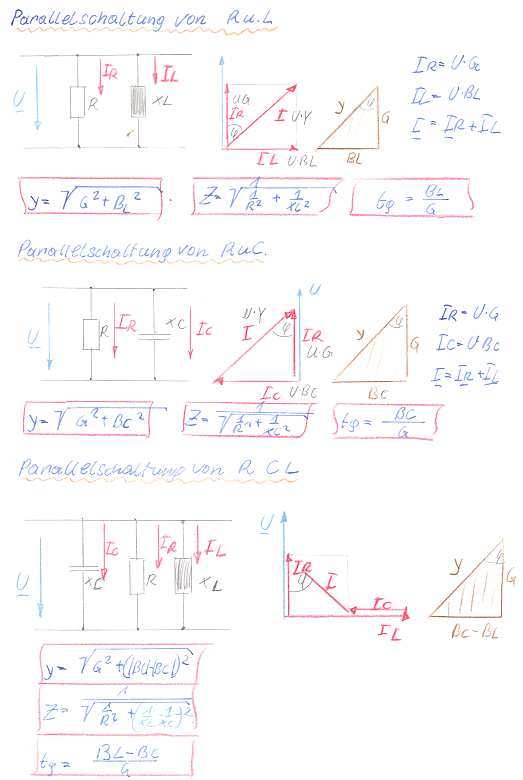 Parallelschaltung von R u. L
U R IR XL IL
U·G IR φ I U·Y IL U·BL
Y φ G BL
IR = U·G
IL = U·BL
I = IR + IL
y = √G² + BL²
Z = 1/√1/R² + 1/XL²
tφ = BL/G
Parallelschaltung von R u C.
U R IR XC IC
U U·Y I φ IR U·G IC U·BC
Y φ G BC
IR = U·G
IC = U·BC
I = IR + IL
y = √G² + BC²
Z = 1/√1/R² + 1/XC²
tφ = BC/G
Parallelschaltung von R C L
U XC IC R IR XL IL
U IR φ I IC IL
Y φ G BC-BL
y = √G² + (|BL|-|BC|)²
Z = 1/√1/R² + (1/XL - 1/XC)²
tφ = BL-BC/G